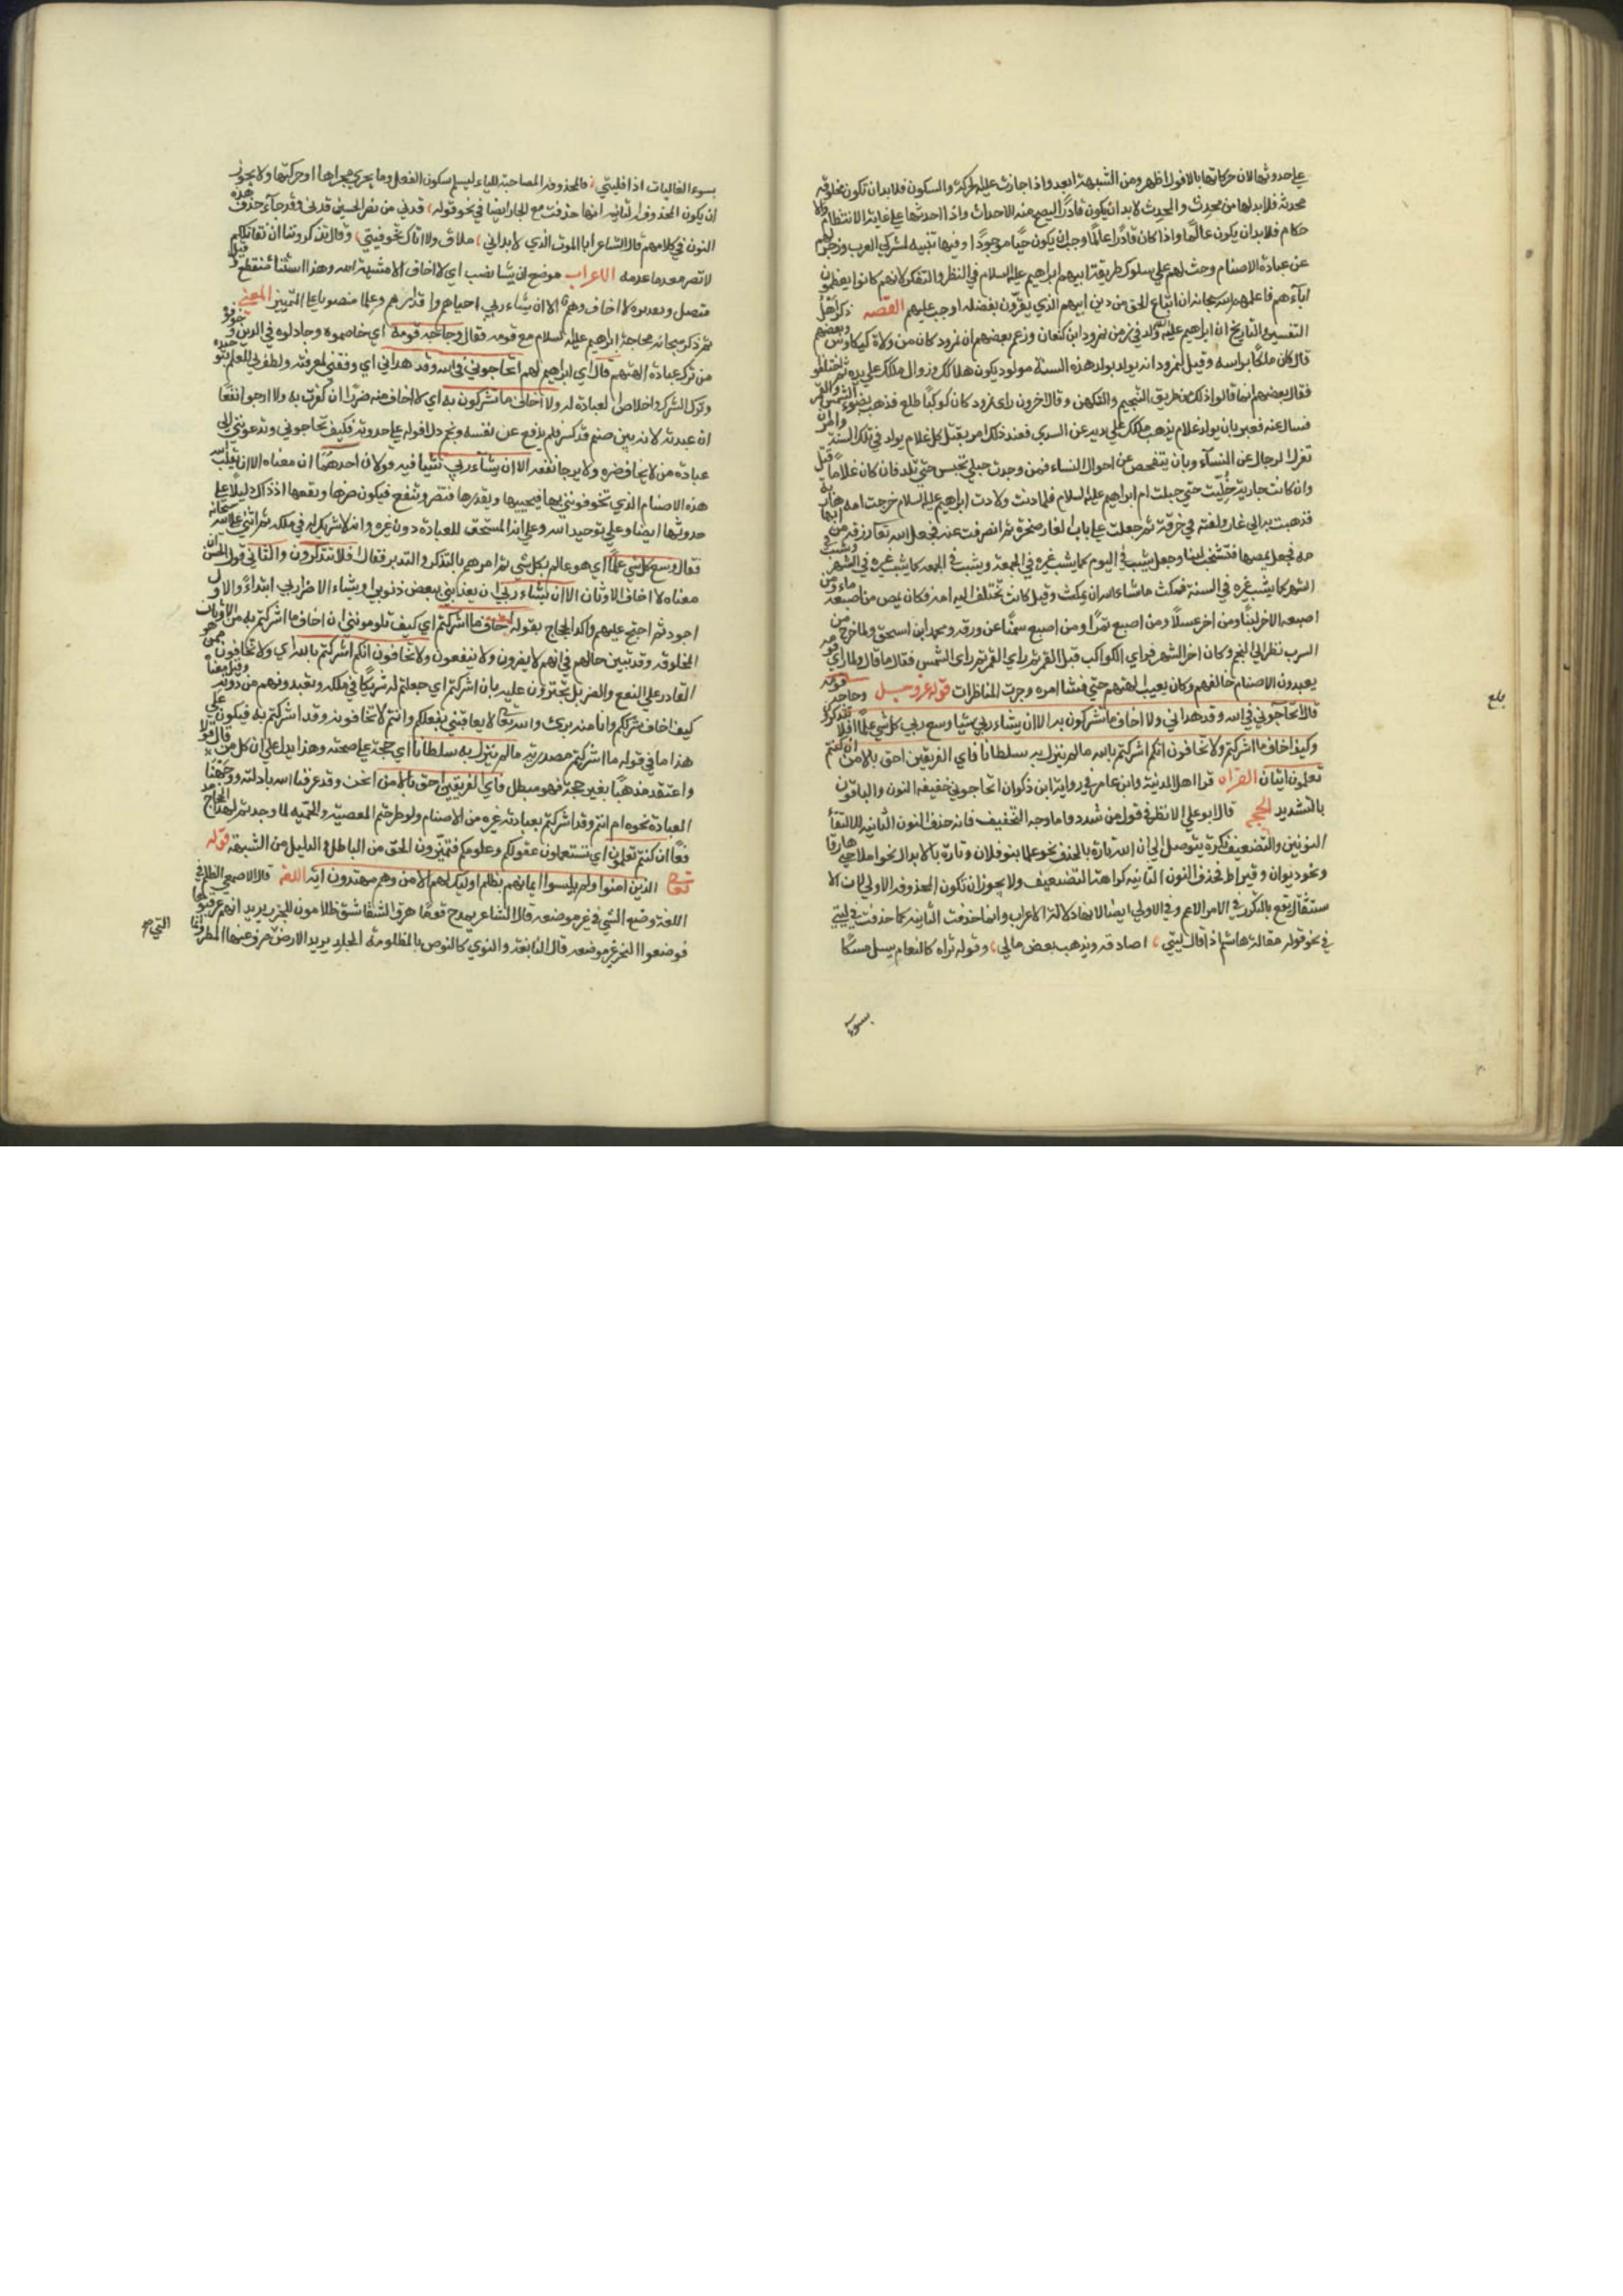 علي حدوثها لان حركاتها بالافول اظهر ومن الشبهة ابعد واذا جازت عليها الحركة والسكون فلا بد ان تكون مخلوقة
محدثة فلا بد لها من محدث والمحدث لا بد ان يكون قادرا ليصح منه الاحداث واذا احدثها علي غاية الانتظام والا
حكام فلا بد ان يكون عالما واذا كان قادرا عالما وجب ان يكون حيا موجودا وفيها تنبيه لمشركي العرب وزجر لهم
عن عبادة الاصنام وحث لهم علي سلوك طريقة ابيهم ابراهيم عليه السلام في النظر والتفكر لانهم كانوا يعظمون
اباءهم فاعلمهم سبحانه ان اتباع الحق من دين ابيهم الذي يقرون بفضله اوجب عليهم القصه ذكر اهل
التفسير والتاريخ ان ابراهيم عليه ولد في زمن نمرود ابن كنعان وزعم بعضهم ان نمرود كان من ولاة كيكاوس وبعضهم
قال كان ملكا براسه وقيل لنمرود انه يولد بولد هذه السنة مولود يكون هلاكك وزوال ملكك علي يده ثم اختلفوا
فقال بعضهم انما قالوا ذلك من طريق التنجيم والتكهن وقال اخرون راي نمرود كان كوكبا طلع فذهب بضوء الشمس والقمر
فسال عنه فعبر بان يولد غلام يذهب ملكك علي يديه عن السدي فعند ذلك امر بقتل كل غلام يولد في تلك السنة وامر ان
تعزل الرجال عن النساء وبان يتفحص عن احوال النساء فمن وجدت حبلي تحبس حتي تلد فان كان غلاما قتل
وان كانت جارية خليت حتي حبلت ام ابراهيم عليه السلام فلما دنت ولادت ابراهيم عليه السلام خرجت امه هاربة
فذهبت به الي غار ولفته في خرقة ثم جعلت علي باب الغار صخرة ثم انصرفت عنه فجعل الله تعا رزقه من ابها
مه فجعل يمصها فتشخب لبنا وجعل يشب في اليوم كما يشب غيره في الجمعة ويشب في الجمعه كما يشب غيره في الشهر ويشب في
الشهر كما يشب غيره في السنة فمكث ماشاء الله ان يمكث وقيل كانت تختلف اليه امه فكان يمص من اصبعه ماء ومن
اصبعه الاخر لبنا ومن اخر عسلا ومن اصبع تمرا ومن اصبع سمنا عن ورقه ومحمد ابن اسحق ولما خرج من
السرب نظر الي النجم وكان اخر الشهر فراي الكواكب قبل القمر ثم راي القمر ثم راي الشمس فقال ما قال ولما راي قومه
يعبدون الاصنام خالفهم وكان يعيب الهتهم حتي فشا امره وجرت المناظرات قوله عز وجل وحاجه قومه
قال اتحاجوني في الله وقد هداني ولا اخاف ما تشركون به الا ان يشاء ربي شيا وسع ربي كل شي علما افلا تتذكرون
وكيف اخاف ما اشركتم ولا تخافون انكم اشركتم بالله ما لم ينزل به سلطانا فاي الفريقين احق بالامن ان كنتم
تعلمون ايتان القراه قرا اهل المدينة وابن عامر في رواية ابن ذكوان اتحاجوني خفيفة النون والباقون
بالتشديد الحجه قال ابو علي لا نظر في قول من شدد واما وجه التخفيف فانه حذف النون الثانية لالتقاء
النونين والتضعيف يكره فيتوصل الي ازالته تارة بالحذف نحو علما بنو فلان وتارة بالابدال نحو املاه حي هارقا
ونحو ديوان وقيراط فحذف النون الثانية كراهة التضعيف ولا يجوز ان تكون المحذوفة الاولي لان الا
ستثقال يقع بالتكرر في الامر الاعم وفي الاولي ايضا لانها دلالة الاعراب وانما حذفت الثانية كما حذفت في ليتي
في نحو قوله مقالة هاشم اذ قال ليتي اصادقه ويذهب بعض مالي وقوله تراه كالثغام يسل مسكا
يسوء
بلغ
بسوء الغاليات اذا فليتي فالمحذوفه المصاحبة للياء ليسلم سكون الفعل وما يجري مجراها او حركتها ولا يجوز
ان يكون المحذوف الثانية انها حذفت مع الجار ايضا في نحو قوله قدني من نصر الحسين قدني وقد جاء حذف هذه
النون في كلامهم قال الشاعر ابا الموت الذي لا بد اني ملاق ولا اباك تخوفيني وقال تذكرونا ان نقاتلكم
لا تضر معدما عدمه الاعراب موضع ان يشا نصب اي لا اخاف الا مشية الله وهذا استثناء منقطع
متصل وتقديره لا اخاف وهم الا ان يشاء ربي احياهم واقدارهم وعلما منصوبا علي التمييز المعني
ثم ذكر سبحانه محاجة ابراهيم عليه السلام مع قومه فقال وحاجه قومه اي خاصموه وجادلوه في الدين وخوفوه
من ترك عبادة الهتهم قال اي ابراهيم لهم اتحاجوني في الله وقد هداني اي وفقني لمعرفته ولطف لي للعلم بتوحيده
وترك الشرك واخلاص العبادة له ولا اخاف ما تشركون به اي لا اخاف منه ضررا ان كفرت به ولا ارجوا نفعا
ان عبدته لانه بين صنم قد كسر فلم يدفع عن نفسه ونجم دل افوله علي حدوثه فكيف تحاجوني وتدعونني الي
عبادة من لا يخاف ضره ولا يرجا نفعه الا ان يشاء ربي شيئا فيه قولان احدهما ان معناه الا ان يقلب الله
هذه الاصنام الذي تخوفونني بها فيحييها ويقدرها فتضر وتنفع فيكون ضرها ونفعها اذ ذاك دليلا علي
حدوثها ايضا وعلي توحيد الله وعلي انه المستحق للعبادة دون غيره وانه لا شريك له في ملكه ثم اثني علي الله سبحانه
فقال وسع كل شي علما اي هو عالم بكل شي ثم امرهم بالتذكر والتدبر فقال افلا تتذكرون والثاني قول الحسن ان
معناه لا اخاف الاوثان الا ان يشاء ربي ان يعذبني ببعض ذنوبي او يشاء الاضرار بي ابتداء والاول
اجود ثم احتج عليهم واكد الحجاج بقوله وكيف اخاف ما اشركتم اي كيف تلومونني ان اخاف ما اشركتم به من الاوثان
المخلوقه وقد تبين حالهم في انهم لا يضرون ولا ينفعون ولا تخافون انكم اشركتم بالله اي ولا تخافون ممن هو
القادر علي النفع والضر بل تجترؤن عليه بان اشركتم اي جعلتم له شريكا في ملكه وتعبدونهم من دونه وقيل معناه
كيف اخاف شرككم وانا منه بري والله تعا لا يعاقبني بفعلكم وانتم لا تخافونه وقد اشركتم به فيكون علي
هذا ما في قوله ما اشركتم مصدريه ما لم ينزل به سلطانا اي حجة علي صحته وهذا يدل علي ان كل من قال قولا
واعتقد مذهبا بغير حجة فهو مبطل فاي الفريقين احق بالامن انحن وقد عرفنا الله بادلته ووجهنا
العبادة نحوه ام انتم وقد اشركتم بعبادته غيره من الاصنام ولو طرحتم العصبية والحمية لما وجدتم لهذا الحجاج
فعا ان كنتم تعلمون اي تستعملون عقولكم وعلومكم فتميزون الحق من الباطل والدليل من الشبهة قوله
تعالي الذين امنوا ولم يلبسوا ايمانهم بظلم اوليك لهم الامن وهم مهتدون ايه اللغه قال الاصمعي الظلم في
اللغة وضع الشي في غير موضعه قال الشاعر يمدح قوما هرت الشقاشق ظلامون للجزر يريد انهم عرقبوها
فوضعوا النحر غير موضعه قال النابغه والنوي كالحوض بالمظلومة الجلد يريد الارض صرف عنها المطر